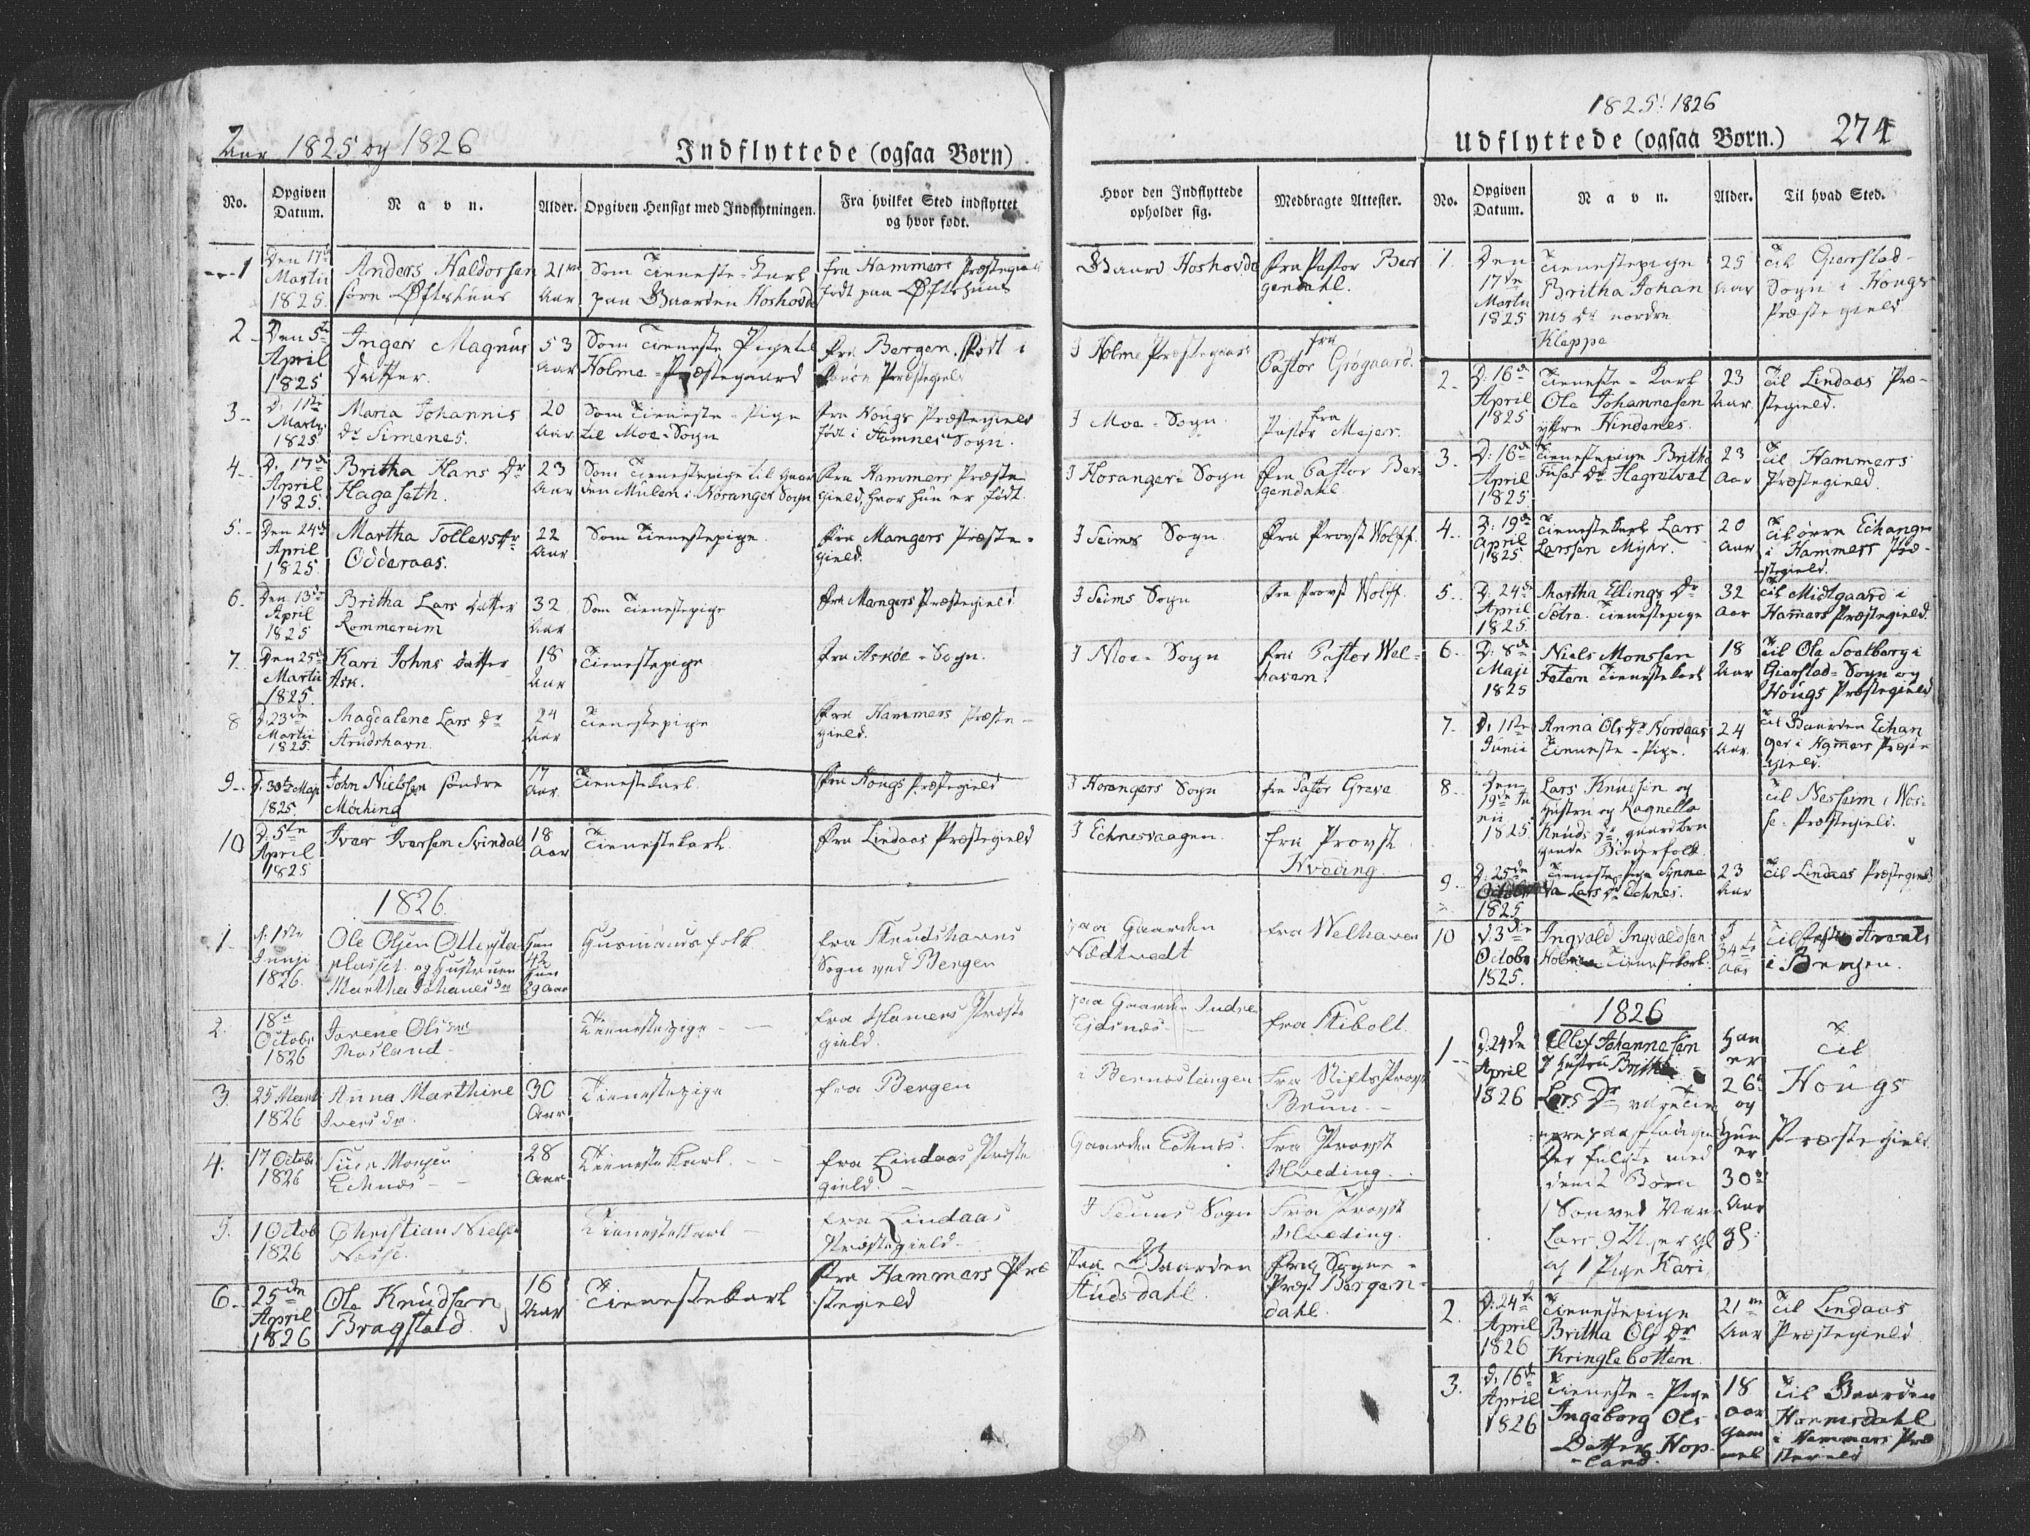 Aar 1825 og 1826
Indflyttede (ogsaa Børn)
No.
Opgiven Datum.
Navn.
Alder.
Opgiven Hensigt med Indflytningen.
Fra hvilket Sted indflyttet og hvor født.
Hvor den Indflyttede opholder sig.
Medbragte Attester.
1
Den 17de Martii 1825.
Anders Haldorsen
21
Aar
Som Tieneste-Karl paa Gaarden
fra Hammers Præstegield født paa
Gaard
Fra Pastor Bergendahl.
2
Den 5te April 1825
Inger Magnus Datter.
53 Aar
Som Tieneste Pige til Holme-Præstegaard
fra Bergen, født i
I Holme Præstegaard
fra Pastor Grøgaard.
3
D. 11te Martii 1825
Maria Johannis Dr Simenes.
20 Aar
Som Tieneste-Pige til Moe-Sogn
fra Hougs Præstegield født i Hamners Sogn.
I Moe-Sogn.
fra Pastor Mejer.
4
D. 17de April 1825.
Britha Hans Dr Hagaseth.
23 Aar
Som Tienestepige til Gaarden Mulen i Hosanger Sogn
fra Hammers Præstegield, hvor hun er født.
I Hosanger-Sogn
fra Pastor Bergendahl
5
Den 24de April 1825.
Martha Tollevs Dr Odderaas.
22 Aar
Som Tienestepige.
fra Mangers Præstegield.
I Seims Sogn
fra Provst Wolff.
6.
Den 13de April 1825
Britha Lars Datter Rommereim
32 Aar
Som Tienestepige
fra Mangers Præstegield
I Seims Sogn
fra Provst Wolff.
7.
Den 25de Martii 1825.
Kari Johns Datter Ask.
18 Aar
Tienestepige
fra Askøe-Sogn.
I Moe-Sogn
fra Pastor Welhaven.
8
D. 23de Martii 1825.
Magdalene Lars Dr
24 Aar
Tienestepige
fra Hammers Præstegield.
9
D. 30te Maji 1825.
John Nielssen søndre Møching
17 Aar
Tienestekarl
fra Hougs Præstegield
I Hosangers Sogn
fra Pastor Greve
10
D. 5te April 1825
Iver Iversen Svindal
18 Aar
Tienestekarl.
fra Lindaas Præstegield
I Echnesvaagen.
fra Provst Hvøding.
1826.
1
d. 1ste Junii 1826.
Ole Olsen
og Hustruen Martha Johanes Dr
Han 42 Hun 29 Aar
Huusmandsfolk
fra
Sogn ved Bergen
paa Gaarden Nødtvedt
fra Welhaven
2.
18de Octobr 1826
Ols Dr Rosland
Tienestepige
fra Hamers Præstegield.
paa Gaarden Indre Eidsnes
fra Kibolt.
3.
25 Marti 1826
Anna Marthine Ivers Dr
30 Aar
Tienestepige
fra Bergen
i Bernestangen
fra Stiftsprovst Brun
4.
17 Octobr 1826
Monsen Echnæs
28 Aar
Tienestekarl.
fra Lindaas Præstegield.
Gaarden Echnæs.
fra Provst Hveding.
5.
1 Octob 1826
Christian Niels
Tienestekarl
fra Lindaas Præstegield
I Seims Sogn
fra Provst Hveding.
6.
25de April 1826
Ole Knudsen Bragstad.
16 Aar
Tienestekarl
fra Hammers Præstegield
Paa Gaarden Hudsdahl.
fra Sogne-Præst Bergendahl.
1825. 1826
Udflyttede (ogsaa Børn.) 274
No.
Opgiven Datum.
Navn.
Alder.
Til hvad Sted.
1.
Den 17de Martii 1825
Tienestepige Britha Johannis Dr nordre Kleppe
25 Aar
Til Gierstad-Sogn i Hougs Præstegield
2.
D. 16de April 1825
Tieneste-Karl Ole Johannesen yttre Hindenes.
23 Aar.
Til Lindaas Præstegield.
3.
D. 16de April 1825
Tienestepige Britha Dr Hegretvet
23 Aar
Til Hammers Præstegield.
4.
D. 19de April 1825
Tienestekarl Lars Larssen Myhr.
20 Aar
Til øvre Echanger i Hammers Præstegield.
5.
D. 24de April 1825
Martha Ellings Dr Sætre. Tienestepige
32 Aar
Til Midtgaard i Hammers Præstegield.
6.
D. 8de Maji 1825
Niels Monssen Tienestekarl
18 Aar
Til Ole i Gierstad-Sogn og Hougs Præstegield
7.
D. 11te Junii
Anna Ols Dr Nordaas Tieneste-Pige.
24 Aar.
Til Gaarden Echanger i Hamers Præstegield.
8.
Den 19de Junii 1825.
Lars Knudsen og Hustru og Ragnella Knuds Dr
Til Nessem i Vosse-Præstegield.
9.
D. 25de October 1825
Tieneste Pige Synneva Lars Dr Echnes.
23 Aar
Til Lindaas Præstegield
10
D. 3de Octobr 1825.
Ingvald Ingvaldsen Tienestekarl.
34te Aar
Til i Bergen.
1826
1
D. 24de April 1826
Johannesen & Hustru Britha Lars Dr
Der fulgte med dem 2 Børn
1 Søn ved Navn Lars
og 1 Pige Kari
Han er 26 og Hun er 30 Aar gl:
Til Hougs Præstegield.
2.
D. 24de April 1826
Tienestepige Britha Ols Dr Kringlebotten.
21 Aar
Til Lindaas Præstegield.
3.
D. 16de April 1826
Tieneste-Pige Ingeborg Ols Datter Hopland.
18 Aar gammel
Til Gaarden Hormsdahl i Hammers Præstegield